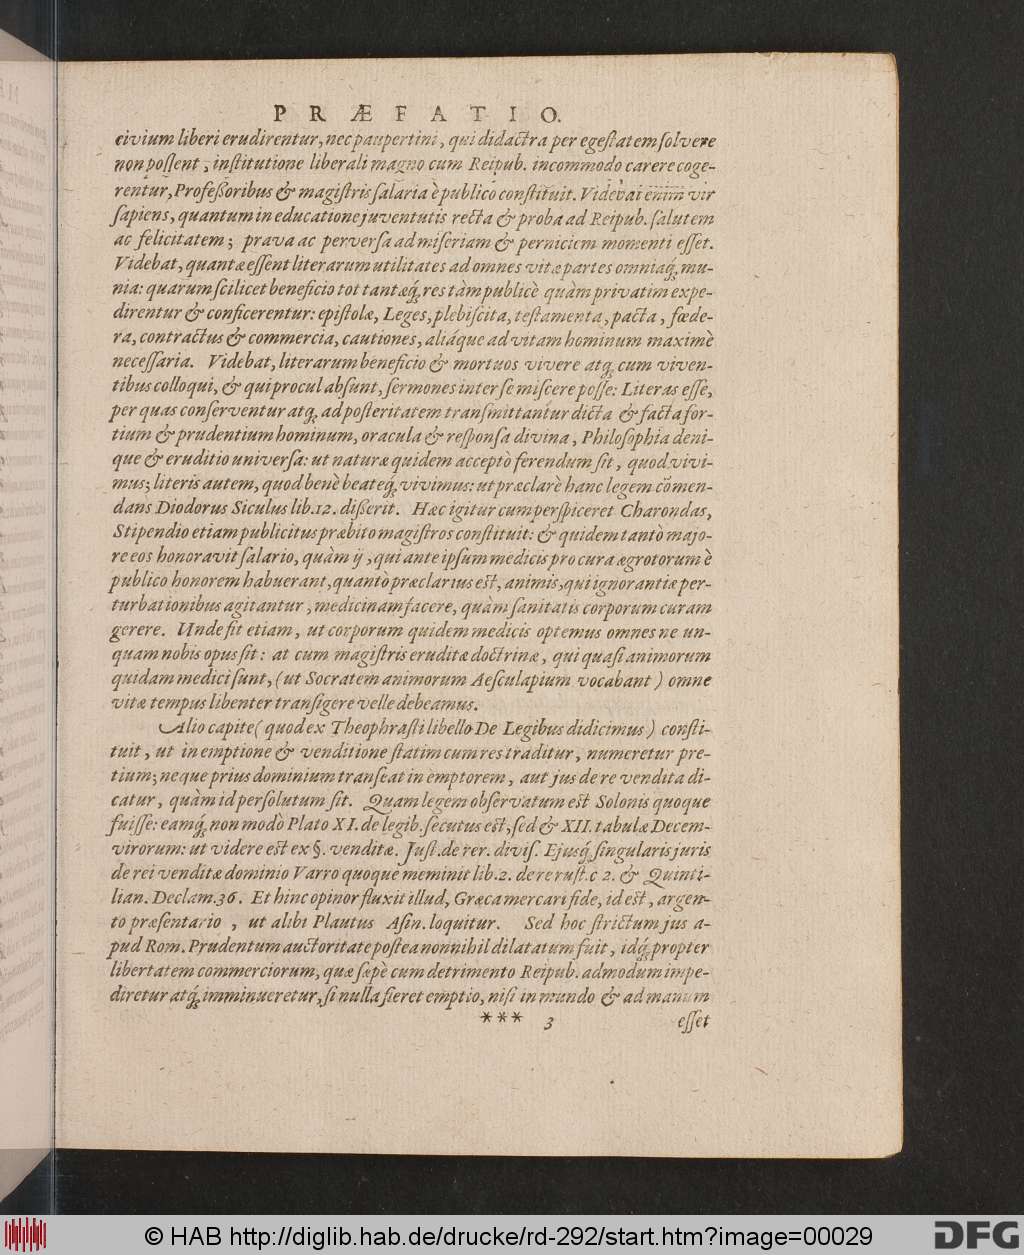 PRÆFATIO.
civium liberi erudirentur, nec paupertini, qui didactra per egestatem solvere
non possent, institutione liberali magno cum Reipub. incommodo carere coge-
rentur, Profeßoribus & magistris salaria è publico constituit. Videbat enim vir
sapiens, quantum in educatione juventutis recta & proba ad Reipub. salutem
ac felicitatem; prava ac perversa ad miseriam & perniciem momenti esset.
Videbat, quantæ essent literarum utilitates ad omnes vitæ partes omniaq́; mu-
nia: quarum scilicet beneficio tot tantæq́; res tàm publicè quàm privatim expe-
direntur & conficerentur: epistolæ, Leges, plebiscita, testamenta, pacta, fœde-
ra, contractus & commercia, cautiones, aliáque ad vitam hominum maximè
necessaria. Videbat, literarum beneficio & mortuos vivere atq; cum viven-
tibus colloqui, & qui procul absunt, sermones inter se miscere posse: Literas esse,
per quas conserventur atq; ad posteritatem transmittantur dicta & facta for-
tium & prudentium hominum, oracula & responsa divina, Philosophia deni-
que & eruditio universa: ut naturæ quidem acceptò ferendum sit, quod vivi-
mus; literis autem, quod benè beateq́; vivimus: ut præclarè hanc legem cõmen-
dans Diodorus Siculus lib.12. dißerit. Hæc igitur cum perspiceret Charondas,
Stipendio etiam publicitus præbito magistros constituit: & quidem tantò majo-
re eos honoravit salario, quàm ij, qui ante ipsum medicis pro cura ægrotorum è
publico honorem habuerant, quantò præclarius est, animis, qui ignorantiæ per-
turbationibus agitantur, medicinam facere, quàm sanitatis corporum curam
gerere. Unde fit etiam, ut corporum quidem medicis optemus omnes ne un-
quam nobis opus sit: at cum magistris eruditæ doctrinæ, qui quasi animorum
quidam medici sunt, (ut Socratem animorum Aesculapium vocabant) omne
vitæ tempus libenter transigere velle debeamus.
Alio capite (quod ex Theophrasti libello De Legibus didicimus) consti-
tuit, ut in emptione & venditione statim cum res traditur, numeretur pre-
tium; neque prius dominium transeat in emptorem, aut jus de re vendita di-
catur, quàm id persolutum sit. Quam legem observatum est Solonis quoque
fuisse: eamq́; non modò Plato XI. de legib. secutus est, sed & XII. tabulæ Decem-
virorum: ut videre est ex §. venditæ. Just. de rer. divis. Ejusq́; singularis juris
de rei venditæ dominio Varro quoque meminit lib.2. de re rust. c 2. & Quinti-
lian. Declam.36. Et hinc opinor fluxit illud, Græca mercari fide, id est, argen-
to præsentario, ut alibi Plautus Asin. loquitur. Sed hoc strictum jus a-
pud Rom. Prudentum auctoritate postea nonnihil dilatatum fuit, idq́; propter
libertatem commerciorum, quæ sæpè cum detrimento Reipub. admodum impe-
diretur atq́; imminueretur, si nulla fieret emptio, nisi in mundo & ad manum
*** 3 esset
© HAB http://diglib.hab.de/drucke/rd-292/start.htm?image=00029 DFG